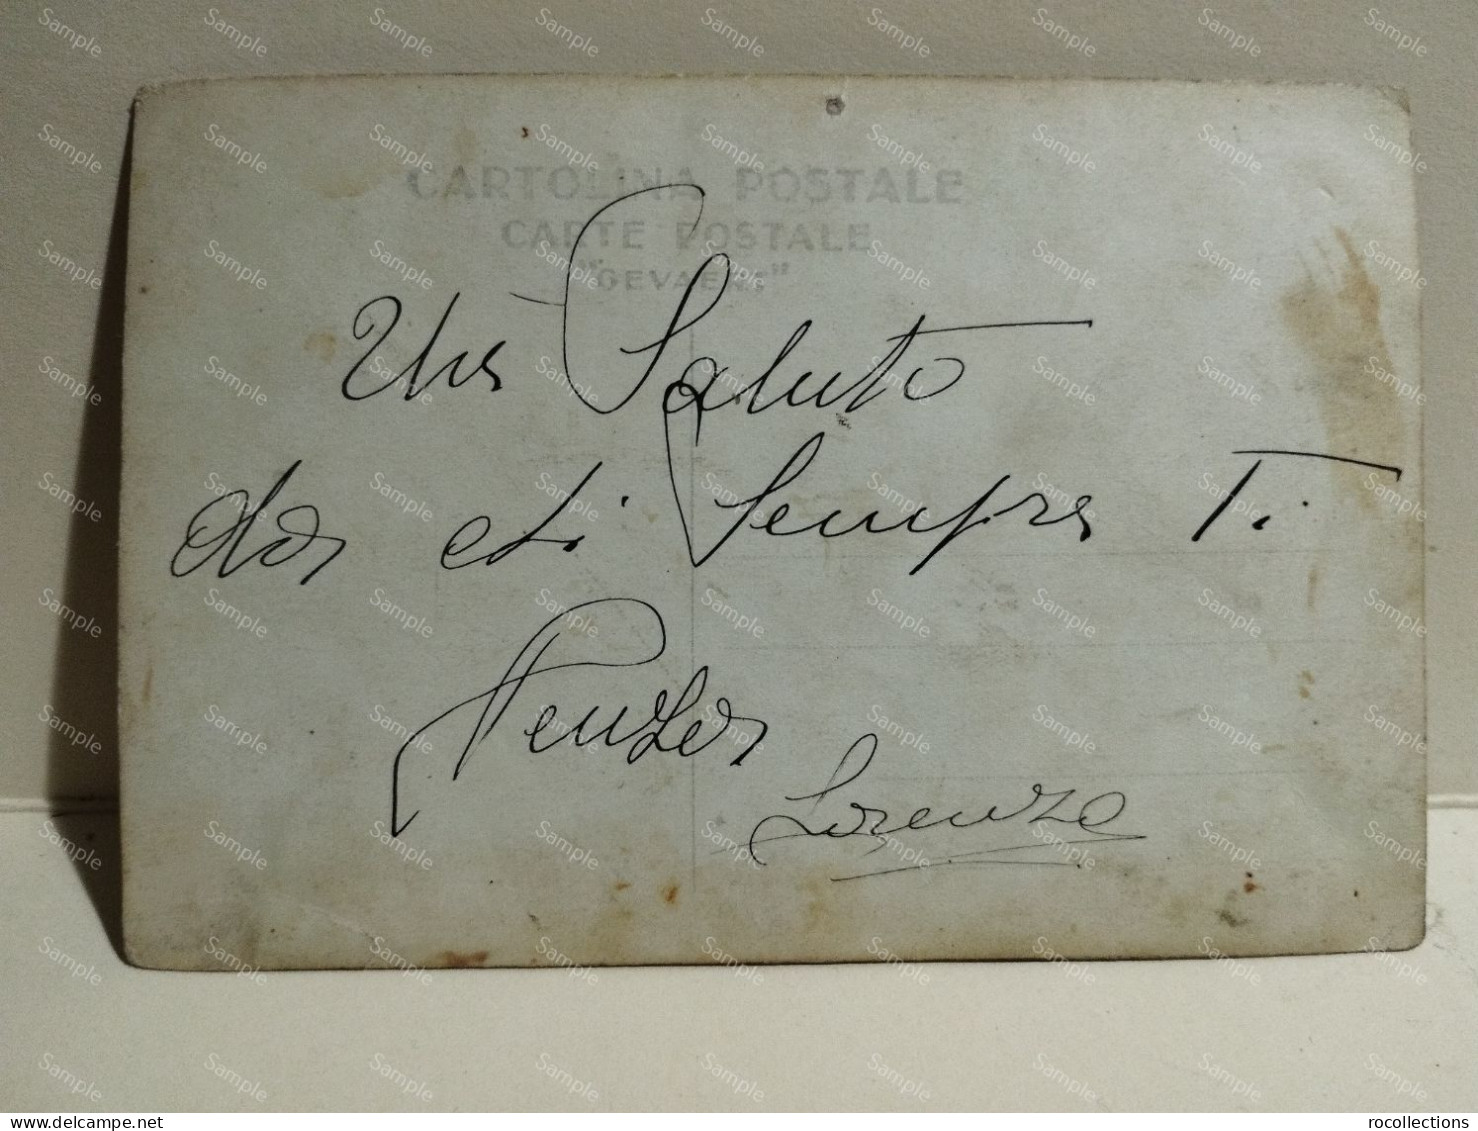 CARTOLINA POSTALE
CARTE POSTALE
"GEVAERT"
Un Saluto
da chi Sempre Ti
Pensa
Lorenzo
rocollections